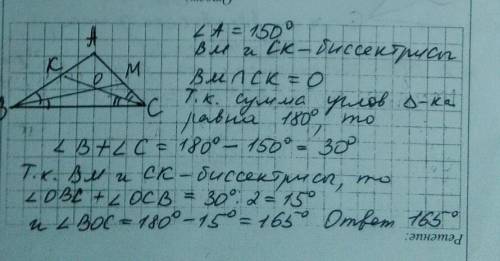 ∠A = 150°
BM и CK - биссектрисы
BM ∩ CK = O
Т.к. сумма углов Δ-ка
равна 180°, то
∠B + ∠C = 180° - 150° = 30°
Т.к. BM и CK - биссектрисы, то
∠OBC + ∠OCB = 30° : 2 = 15°
и ∠BOC = 180° - 15° = 165° Ответ 165°
A
K
O
M
B
C
Решение: